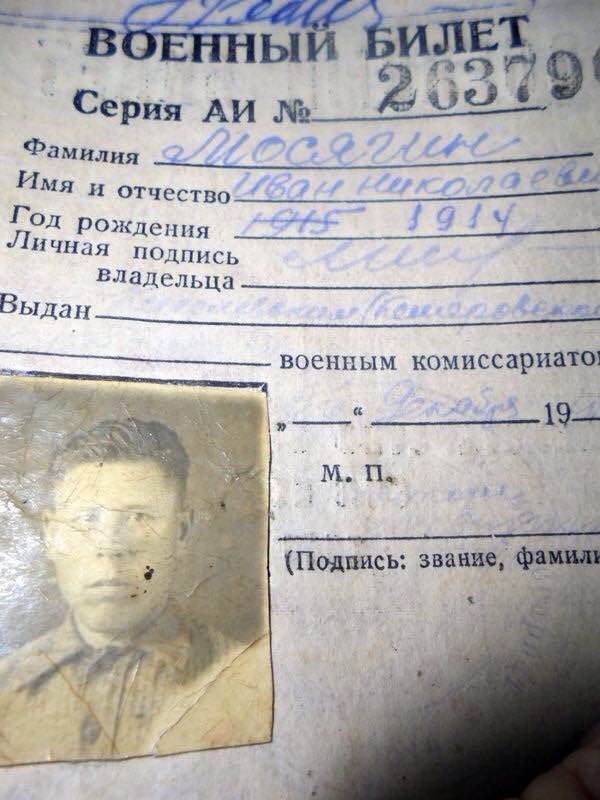 ВОЕННЫЙ БИЛЕТ
Серия АИ № 263790
Фамилия Мосягин
Имя и отчество Иван Николаеви
Год рождения 1915 1914
Личная подпись
владельца
Выдан
военным комиссариато
„ “ Декабря 19
М. П.
(Подпись: звание, фамили